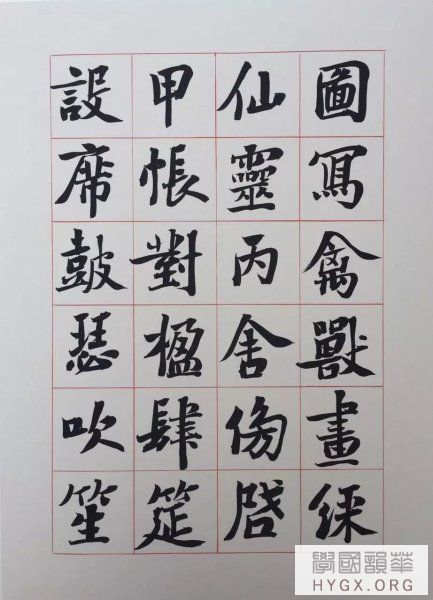 圖寫禽獸畫綵
仙靈丙舍傍啓
甲帳對楹肆筵
設席鼓瑟吹笙
華韻國學
HYGX.ORG